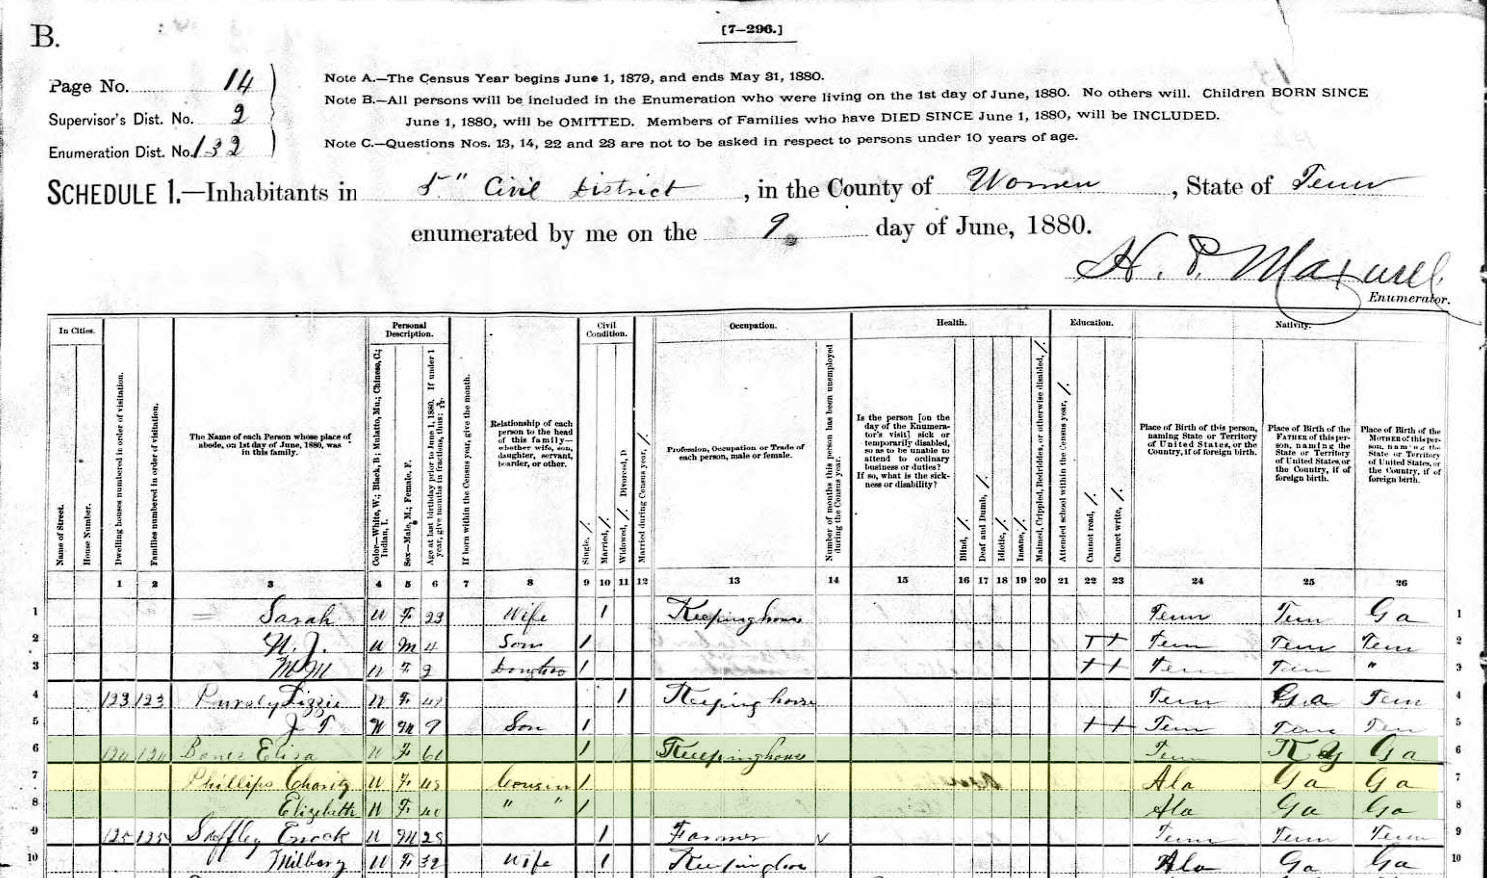 B.
[7–296.]
Page No. 14
Supervisor's Dist. No. 2
Enumeration Dist. No. 132
Note A.—The Census Year begins June 1, 1879, and ends May 31, 1880.
Note B.—All persons will be included in the Enumeration who were living on the 1st day of June, 1880. No others will. Children BORN SINCE
June 1, 1880, will be OMITTED. Members of Families who have DIED SINCE June 1, 1880, will be INCLUDED.
Note C.—Questions Nos. 13, 14, 22 and 23 are not to be asked in respect to persons under 10 years of age.
SCHEDULE 1.—Inhabitants in 5" Civil District, in the County of Warren, State of Tenn
enumerated by me on the 9 day of June, 1880.
H. P. Maxwell
Enumerator.
In Cities.
Name of Street.
House Number.
Dwelling houses numbered in order of visitation.
Families numbered in order of visitation.
The Name of each Person whose place of abode, on 1st day of June, 1880, was in this family.
Personal Description.
Color—White, W.; Black, B; Mulatto, Mu.; Chinese, C.; Indian, I.
Sex—Male, M.; Female, F.
Age at last birthday prior to June 1, 1880. If under 1 year, give months in fractions, thus:
If born within the Census year, give the month.
Relationship of each person to the head of this family—whether wife, son, daughter, servant, boarder, or other.
Civil Condition.
Single, /.
Married, /.
Widowed, /. Divorced, D.
Married during Census year, /.
Occupation.
Profession, Occupation or Trade of each person, male or female.
Number of months this person has been unemployed during the Census year.
Health.
Is the person [on the day of the Enumerator's visit] sick or temporarily disabled, so as to be unable to attend to ordinary business or duties? If so, what is the sickness or disability?
Blind, /.
Deaf and Dumb, /.
Idiotic, /.
Insane, /.
Maimed, Crippled, Bedridden, or otherwise disabled, /.
Education.
Attended school within the Census year, /.
Cannot read, /.
Cannot write, /.
Nativity.
Place of Birth of this person, naming State or Territory of United States, or the Country, if of foreign birth.
Place of Birth of the FATHER of this person, naming the State or Territory of United States, or the Country, if of foreign birth.
Place of Birth of the MOTHER of this person, naming the State or Territory of United States, or the Country, if of foreign birth.
1 2 3 4 5 6 7 8 9 10 11 12 13 14 15 16 17 18 19 20 21 22 23 24 25 26
1 Sarah W F 23 Wife / Keeping house Tenn Tenn Ga 1
2 W. J. W M 4 Son / + + Tenn Tenn Tenn 2
3 W F 2 / + + Tenn Tenn " 3
4 123 123 Lizzie W F / Keeping house Tenn Ga Tenn 4
5 J T W M 9 Son / + + Tenn Tenn Tenn 5
6 124 124 Eliza W F / Keeping house Tenn Ky Ga 6
7 Phillips Charity W F Cousin / Ala Ga Ga 7
8 Elizabeth W F 40 " " / Ala Ga Ga 8
9 125 125 Enock W M 28 / Farmer Tenn Tenn Tenn 9
10 Milbery W F 32 Wife / Ala Ga Ga 10